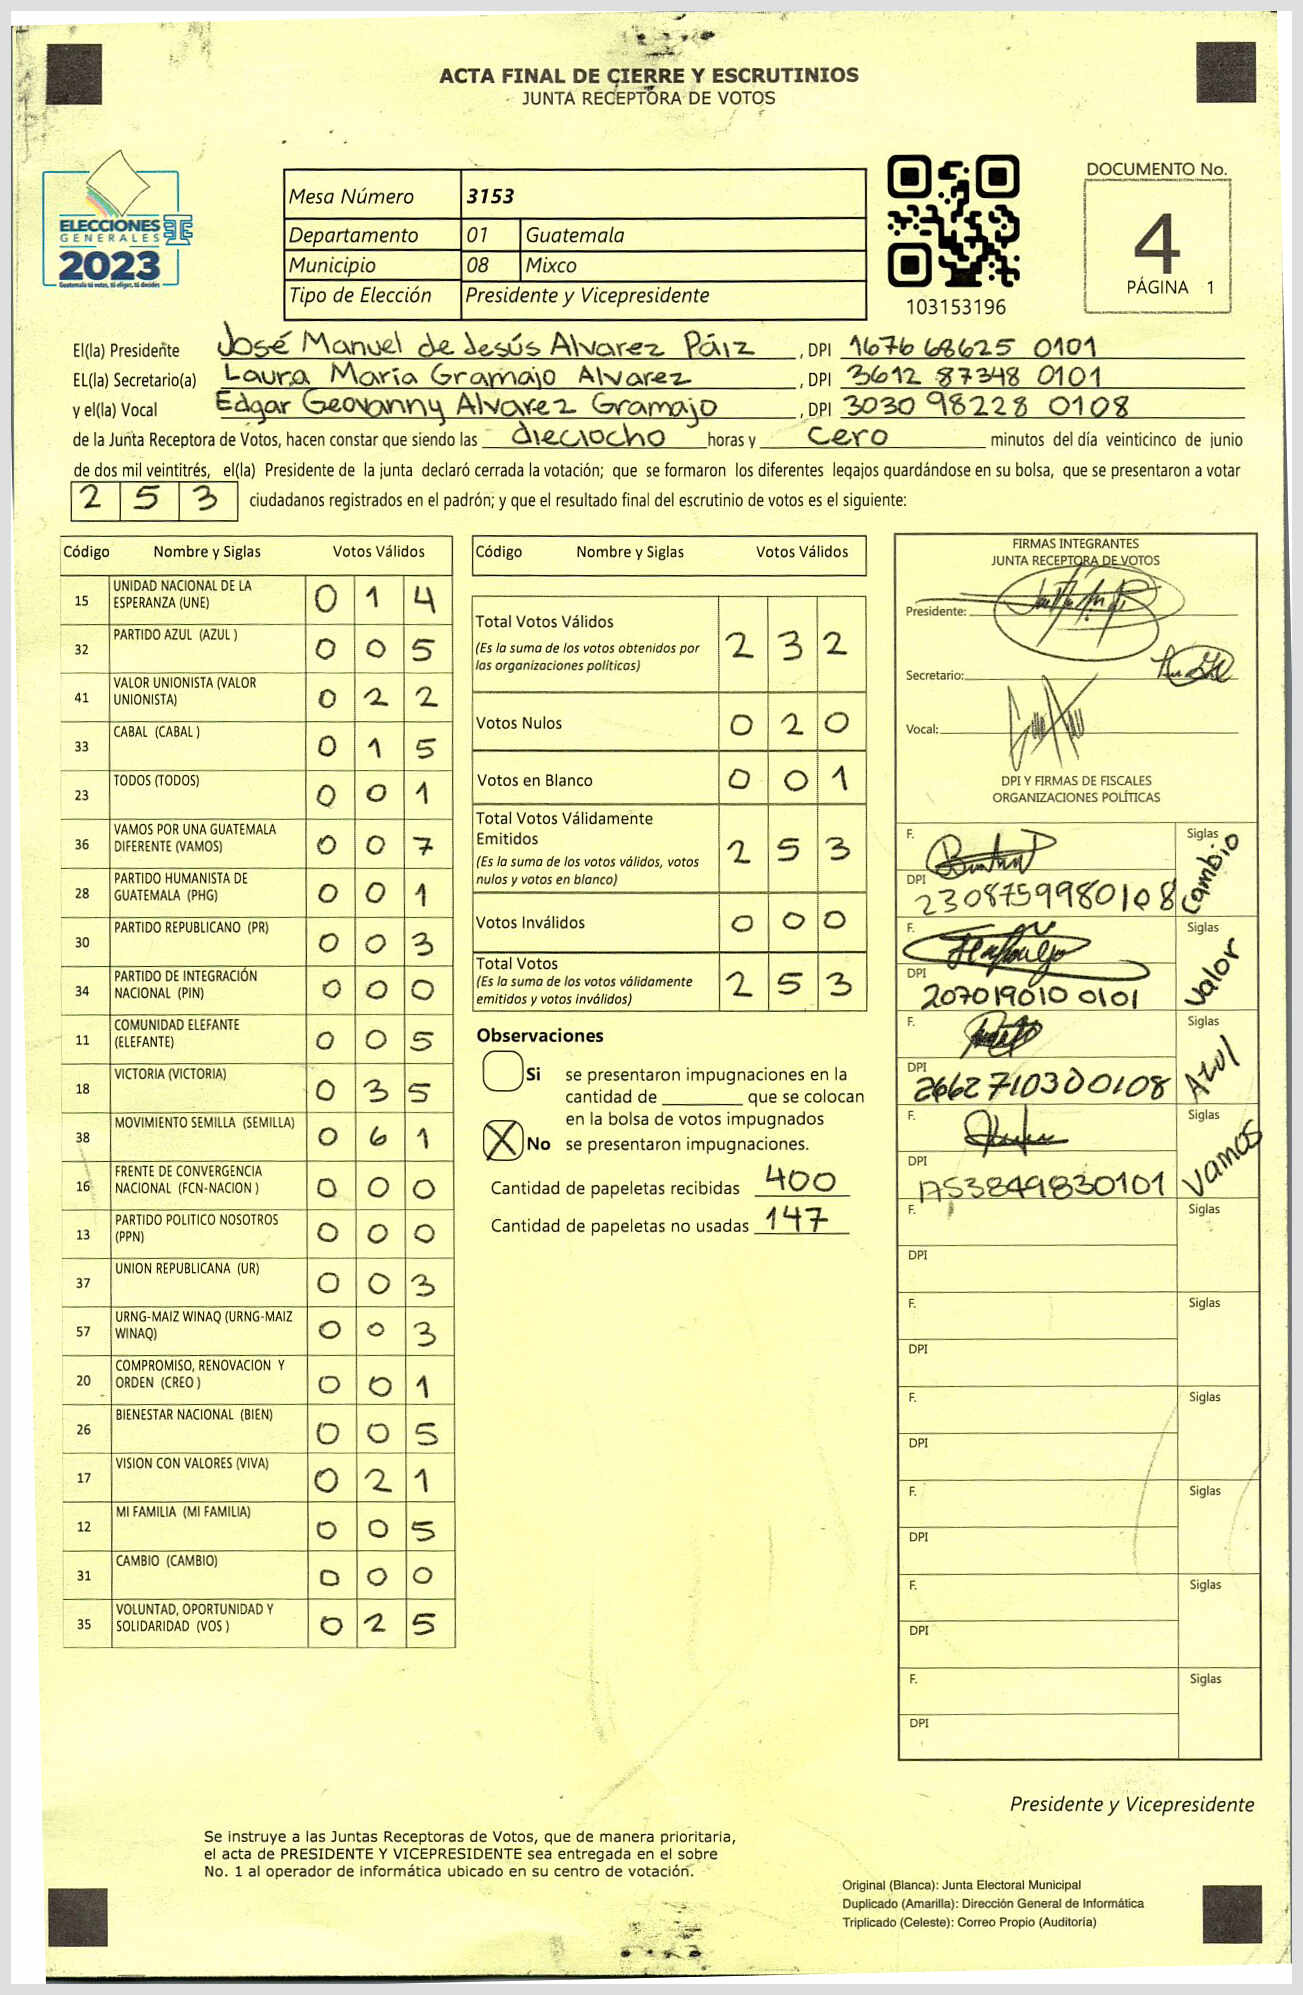 ACTA FINAL DE CIERRE Y ESCRUTINIOS
JUNTA RECEPTORA DE VOTOS
ELECCIONES
GENERALES
2023
Guatemala tú votas, tú eliges, tú decides
Mesa Número 3153
Departamento 01 Guatemala
Municipio 08 Mixco
Tipo de Elección Presidente y Vicepresidente
103153196
DOCUMENTO No.
4
PÁGINA 1
El(la) Presidente José Manuel de Jesús Alvarez Páiz , DPI 1676 68625 0101
EL(la) Secretario(a) Laura María Gramajo Alvarez , DPI 3612 87348 0101
y el(la) Vocal Edgar Geovanny Alvarez Gramajo , DPI 3030 98228 0108
de la Junta Receptora de Votos, hacen constar que siendo las dieciocho horas y cero minutos del día veinticinco de junio
de dos mil veintitrés, el(la) Presidente de la junta declaró cerrada la votación; que se formaron los diferentes legajos guardándose en su bolsa, que se presentaron a votar
2 5 3 ciudadanos registrados en el padrón; y que el resultado final del escrutinio de votos es el siguiente:
Código Nombre y Siglas Votos Válidos
15 UNIDAD NACIONAL DE LA
ESPERANZA (UNE) 0 1 4
32 PARTIDO AZUL (AZUL ) 0 0 5
41 VALOR UNIONISTA (VALOR
UNIONISTA) 0 2 2
33 CABAL (CABAL ) 0 1 5
23 TODOS (TODOS) 0 0 1
36 VAMOS POR UNA GUATEMALA
DIFERENTE (VAMOS) 0 0 7
28 PARTIDO HUMANISTA DE
GUATEMALA (PHG) 0 0 1
30 PARTIDO REPUBLICANO (PR) 0 0 3
34 PARTIDO DE INTEGRACIÓN
NACIONAL (PIN) 0 0 0
11 COMUNIDAD ELEFANTE
(ELEFANTE) 0 0 5
18 VICTORIA (VICTORIA) 0 3 5
38 MOVIMIENTO SEMILLA (SEMILLA) 0 6 1
16 FRENTE DE CONVERGENCIA
NACIONAL (FCN-NACION ) 0 0 0
13 PARTIDO POLITICO NOSOTROS
(PPN) 0 0 0
37 UNION REPUBLICANA (UR) 0 0 3
57 URNG-MAIZ WINAQ (URNG-MAIZ
WINAQ) 0 0 3
20 COMPROMISO, RENOVACION Y
ORDEN (CREO ) 0 0 1
26 BIENESTAR NACIONAL (BIEN) 0 0 5
17 VISION CON VALORES (VIVA) 0 2 1
12 MI FAMILIA (MI FAMILIA) 0 0 5
31 CAMBIO (CAMBIO) 0 0 0
35 VOLUNTAD, OPORTUNIDAD Y
SOLIDARIDAD (VOS ) 0 2 5
Código Nombre y Siglas Votos Válidos
Total Votos Válidos
(Es la suma de los votos obtenidos por
las organizaciones políticas) 2 3 2
Votos Nulos 0 2 0
Votos en Blanco 0 0 1
Total Votos Válidamente
Emitidos
(Es la suma de los votos válidos, votos
nulos y votos en blanco) 2 5 3
Votos Inválidos 0 0 0
Total Votos
(Es la suma de los votos válidamente
emitidos y votos inválidos) 2 5 3
Observaciones
Si se presentaron impugnaciones en la
cantidad de ________ que se colocan
en la bolsa de votos impugnados
X No se presentaron impugnaciones.
Cantidad de papeletas recibidas 400
Cantidad de papeletas no usadas 147
FIRMAS INTEGRANTES
JUNTA RECEPTORA DE VOTOS
Presidente:
Secretario:
Vocal:
DPI Y FIRMAS DE FISCALES
ORGANIZACIONES POLÍTICAS
F. Siglas Cambio
DPI 2308759980108
F. Siglas Valor
DPI 207019010 0101
F. Siglas Azul
DPI 2662710300108
F. Siglas Vamos
DPI 1753849830101
F. Siglas
DPI
F. Siglas
DPI
F. Siglas
DPI
F. Siglas
DPI
F. Siglas
DPI
F. Siglas
DPI
Presidente y Vicepresidente
Se instruye a las Juntas Receptoras de Votos, que de manera prioritaria,
el acta de PRESIDENTE Y VICEPRESIDENTE sea entregada en el sobre
No. 1 al operador de informática ubicado en su centro de votación.
Original (Blanca): Junta Electoral Municipal
Duplicado (Amarilla): Dirección General de Informática
Triplicado (Celeste): Correo Propio (Auditoría)